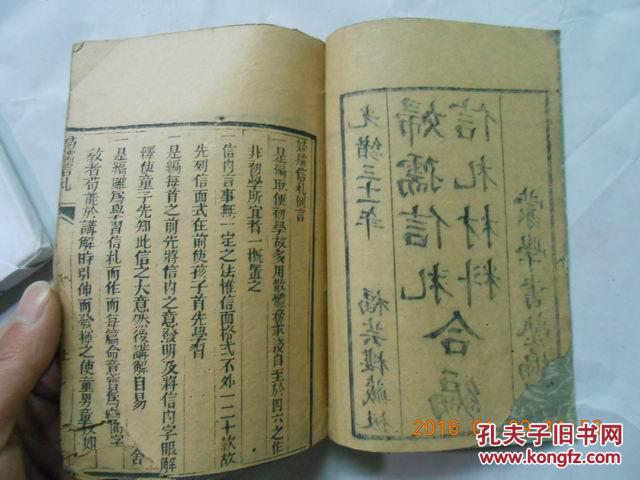 蒙學書塾編
信札材料
婦孺信札
合編
光緒三十一年
福芸樓藏板
婦孺信札例言
一是編取便初學故多用散體務求淺白至於四六之作
非初學所宜者一概置之
一信內言事無一定之法惟信面格式不外一二十款故
先列信面式在前使孩子首先學習
一是編每首之前先將信內之意發明及將信內字眼解
釋使童子先知此信之大意然後講解自易
一是編雖為學習信札而作而每篇命意實為
教者苟能於講解時引伸而發揮之使童男童女如
婦孺信札
2016
孔夫子旧书网
www.kongfz.com